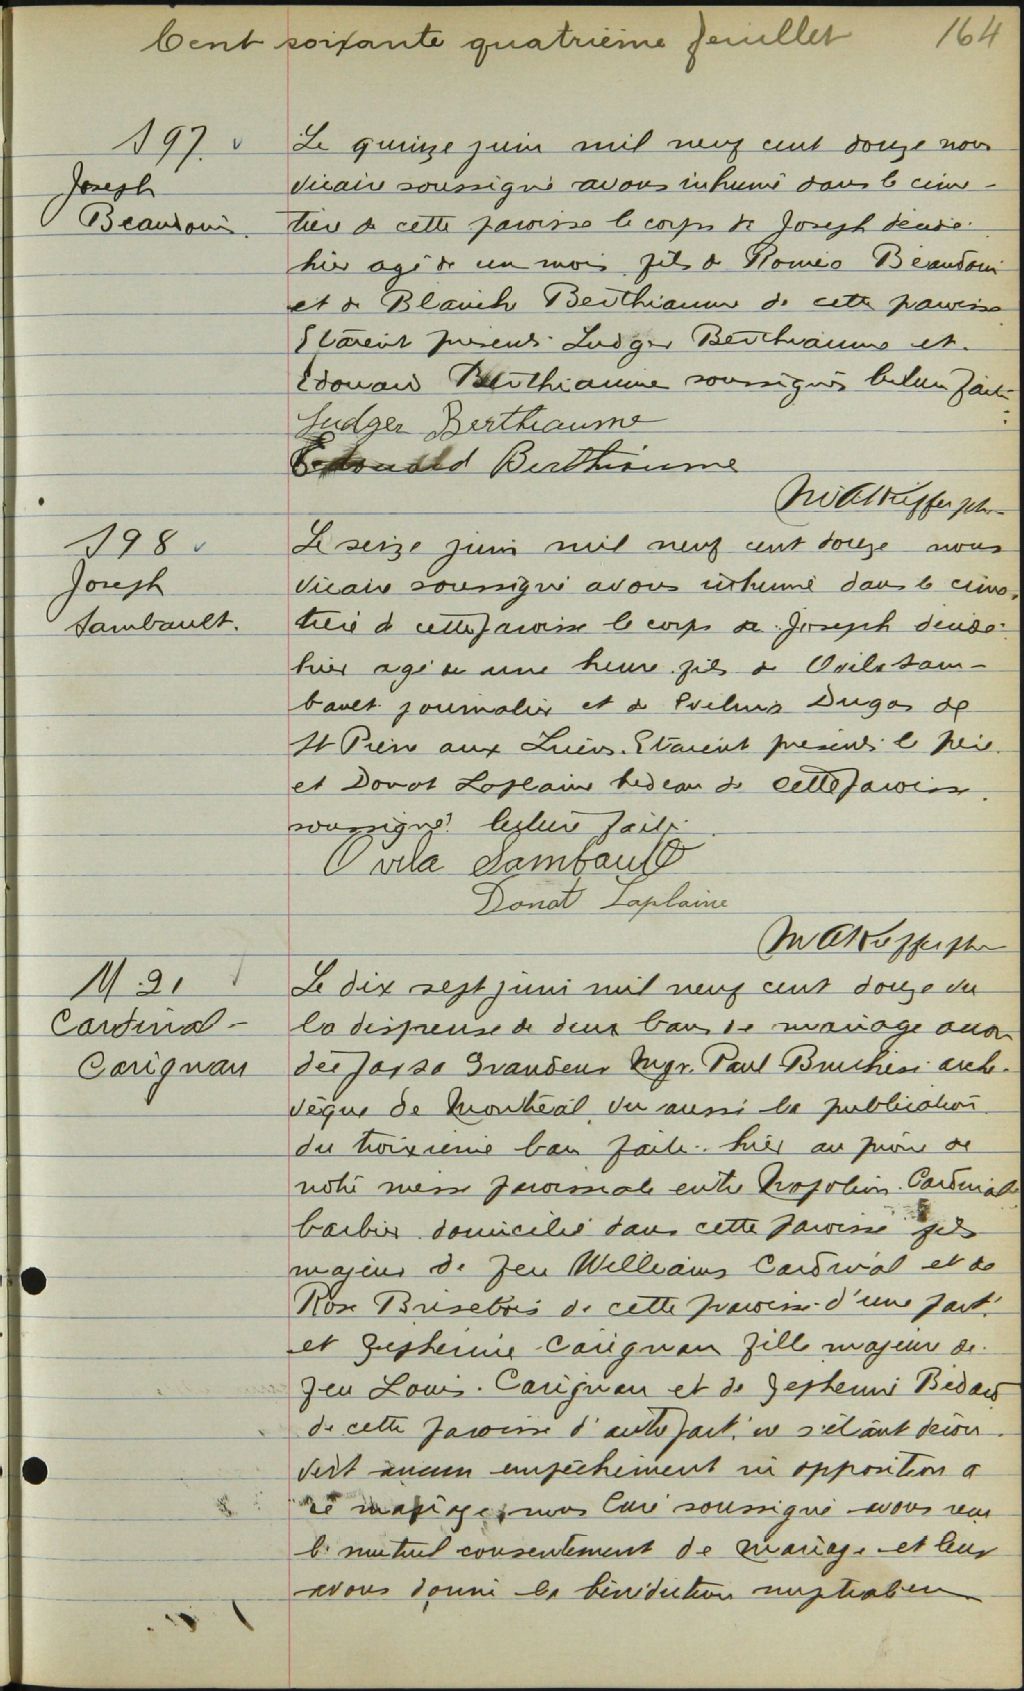 Cent soixante quatrième feuillet 164
S 97.
Joseph
Beaudoin.
Le quinze juin mil neuf cent douze nous
vicaire soussigné avons inhumé dans le cime-
tière de cette paroisse le corps de Joseph décédé
hier agé de un mois fils de Roméo Beaudoin
et de Blanche Berthiaume de cette paroisse
Etaient présents Ludger Berthiaume et
Edouard Berthiaume soussignés lecture faite
Ludger Berthiaume
Edouard Berthiaume
S 98
Joseph
Sambault.
Le seize juin mil neuf cent douze nous
vicaire soussigné avons inhumé dans le cime-
tière de cette paroisse le corps de Joseph décédé
hier agé de une heure fils de Ovila Sam-
bault journalier et de Dugas de
St Pierre aux Liens. Etaient présents le père
et Donat Laplaine bedeau de cette paroisse
soussignés lecture faite.
Ovila Sambault
Donat Laplaine
M 21
Cardinal -
Carignan
Le dix sept juin mil neuf cent douze vu
la dispense de deux bans de mariage accor
dée par sa Grandeur Mgr. Paul Bruchési arche-
vêque de Montréal vu aussi la publication
du troisième ban faite hier au prône de
notre messe paroissiale entre Napoléon Cardinal
barbier domicilié dans cette paroisse fils
majeur de feu Williams Cardinal et de
Rose Brisebois de cette paroisse d'une part.
et Zephirine Carignan fille majeure de
feu Louis Carignan et de Zephirine Bédard
de cette paroisse d'autre part, ne s'étant décou
vert aucun empêchement ni opposition a
ce mariage, nous Curé soussigné avons reçu
le mutuel consentement de mariage et leur
avons donné la bénédiction nuptiale en